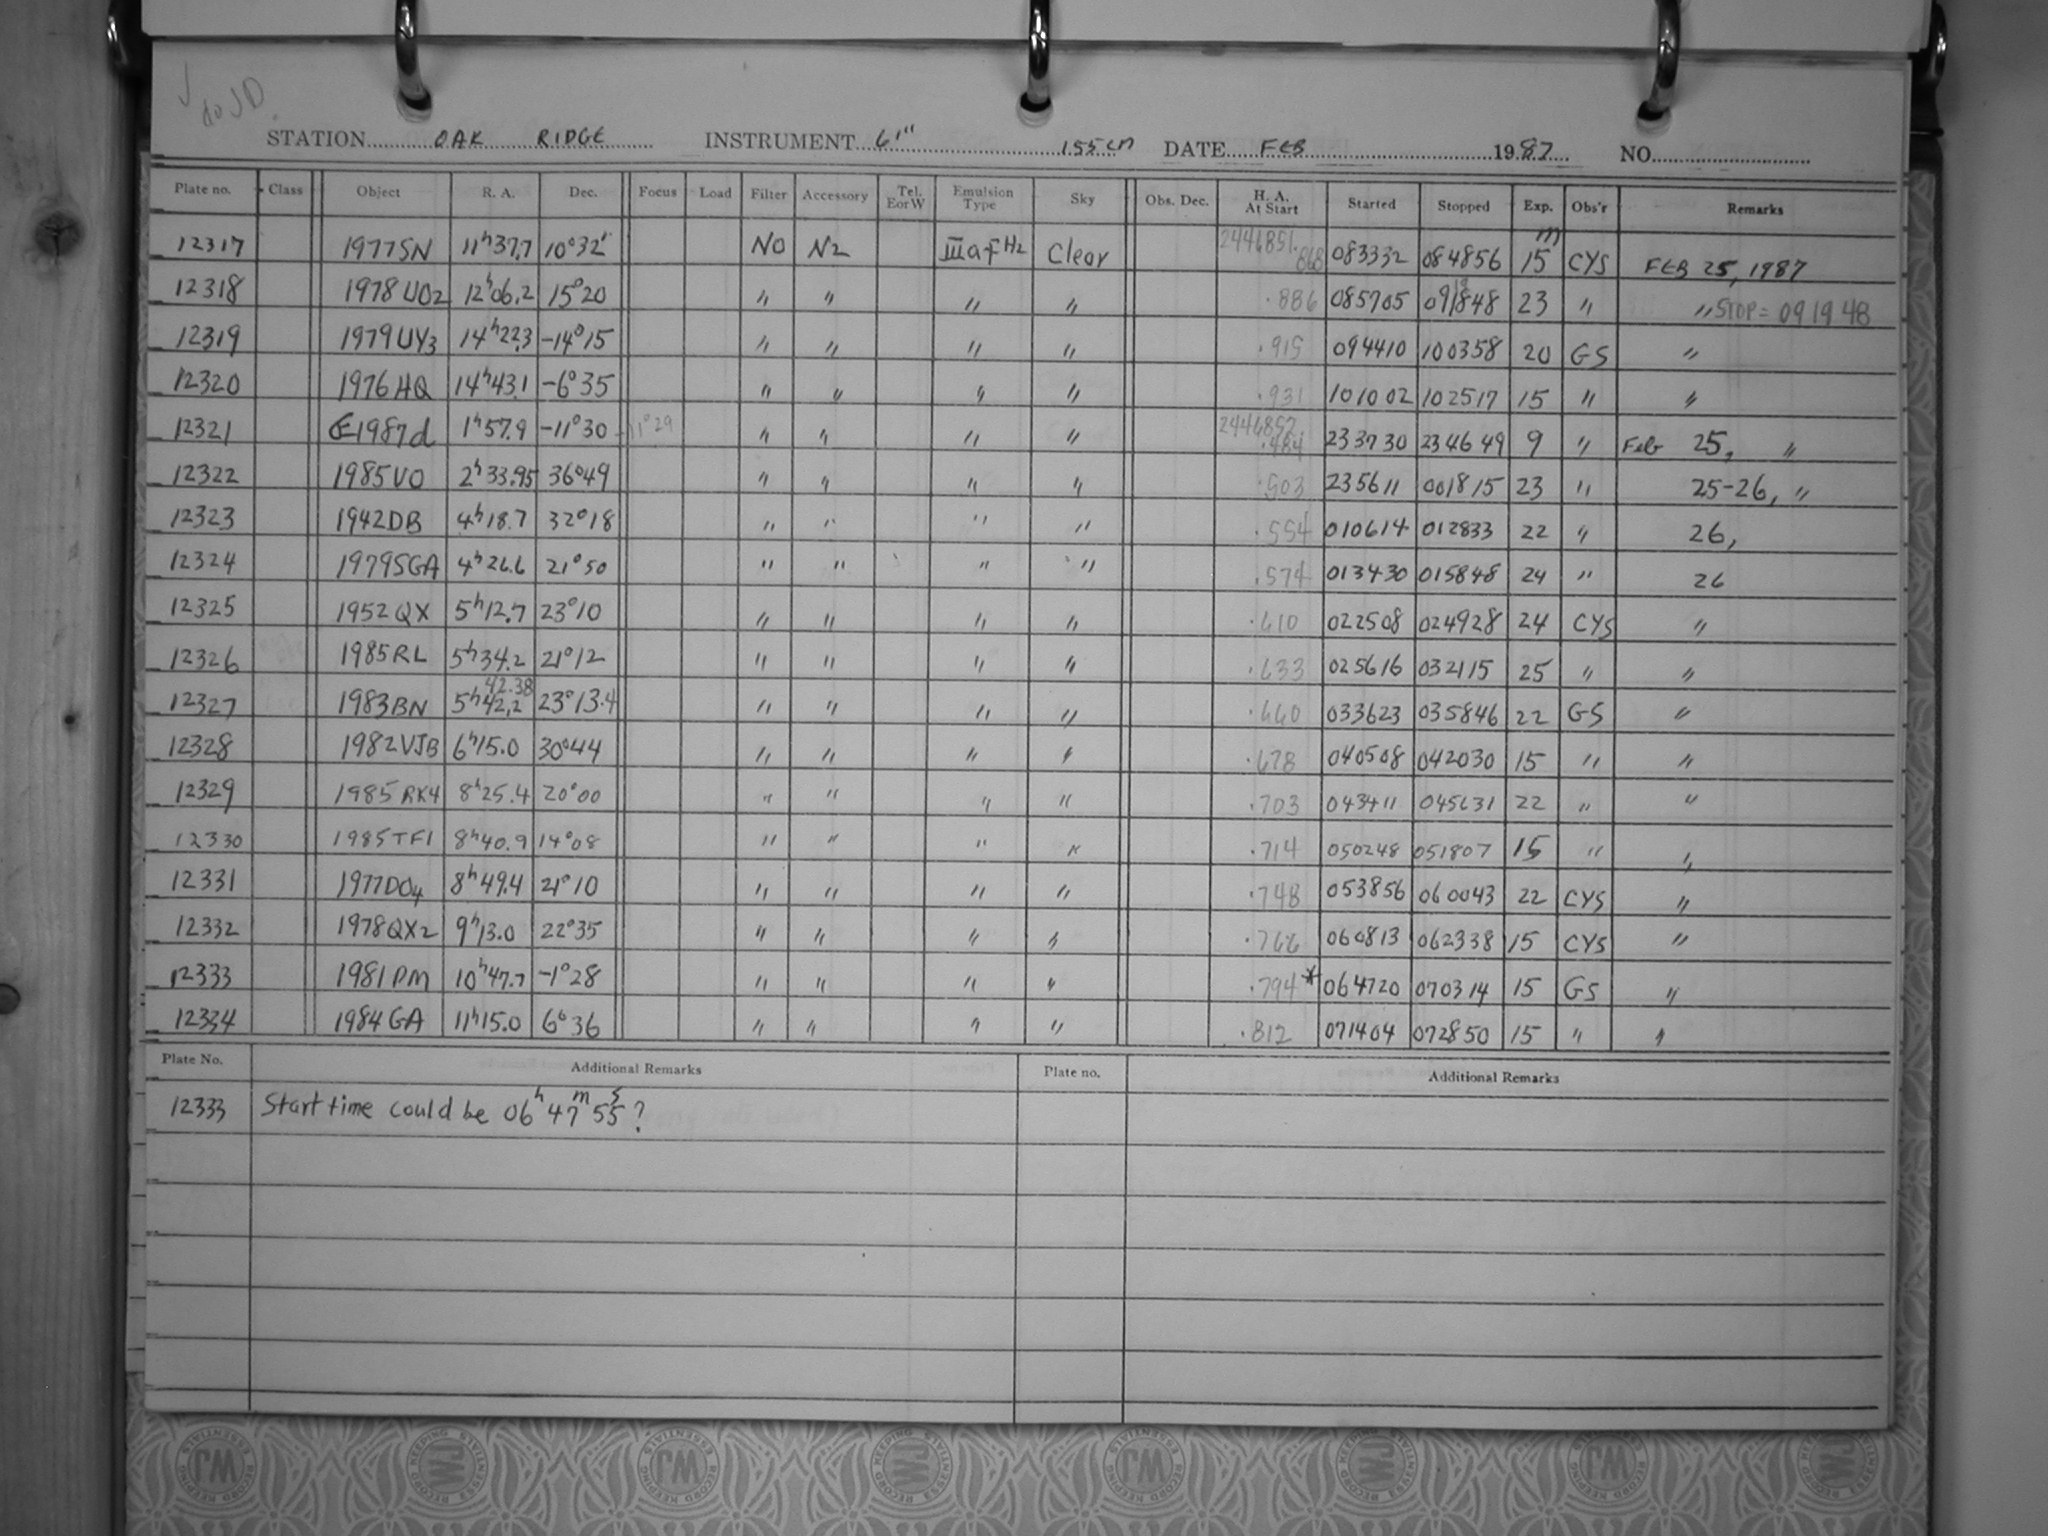 √ do JD.
STATION OAK RIDGE INSTRUMENT 61" 155cm DATE FEB 1987 NO.
Plate no. Class Object R. A. Dec. Focus Load Filter Accessory Tel. E or W Emulsion Type Sky Obs. Dec. H. A. At Start Started Stopped Exp. Obs'r Remarks
12317 1977SN 11h37.7 10°32' NO N2 IIIaF H2 Clear 2446851.868 083332 084856 15m CYS FEB 25, 1987
12318 1978UO2 12h06.2 15°20 " " " " .886 085705 091848 19 23 " " STOP = 091948
12319 1979UY3 14h22.3 -14°15 " " " " .915 094410 100358 20 GS "
12320 1976HQ 14h43.1 -6°35 " " " " .931 101002 102517 15 " "
12321 1987d 1h57.9 -11°30 -11°29 " " " " 2446852.484 233730 234649 9 " Feb 25, "
12322 1985VO 2h33.95 36°49 " " " " .503 235611 001815 23 " 25-26, "
12323 1942DB 4h18.7 32°18 " " " " .554 010614 012833 22 " 26,
12324 1979SGA 4h26.6 21°50 " " " " .574 013430 015848 24 " 26
12325 1952QX 5h12.7 23°10 " " " " .610 022508 024928 24 CYS "
12326 1985RL 5h34.2 21°12 " " " " .633 025616 032115 25 " "
12327 1983BN 5h42.2 42.38 23°13.4 " " " " .660 033623 035846 22 GS "
12328 1982VJB 6h15.0 30°44 " " " " .678 040508 042030 15 " "
12329 1985RK4 8h25.4 20°00 " " " " .703 043411 045631 22 " "
12330 1985TF1 8h40.9 14°08 " " " " .714 050248 051807 15 " "
12331 1977DO4 8h49.4 21°10 " " " " .748 053856 060043 22 CYS "
12332 1978QX2 9h13.0 22°35 " " " " .766 060813 062338 15 CYS "
12333 1981DM 10h47.7 -1°28 " " " " .794 * 064720 070314 15 GS "
12334 1984GA 11h15.0 6°36 " " " " .812 071404 072850 15 " "
Plate No. Additional Remarks Plate no. Additional Remarks
12333 Start time could be 06h 47m 55s?